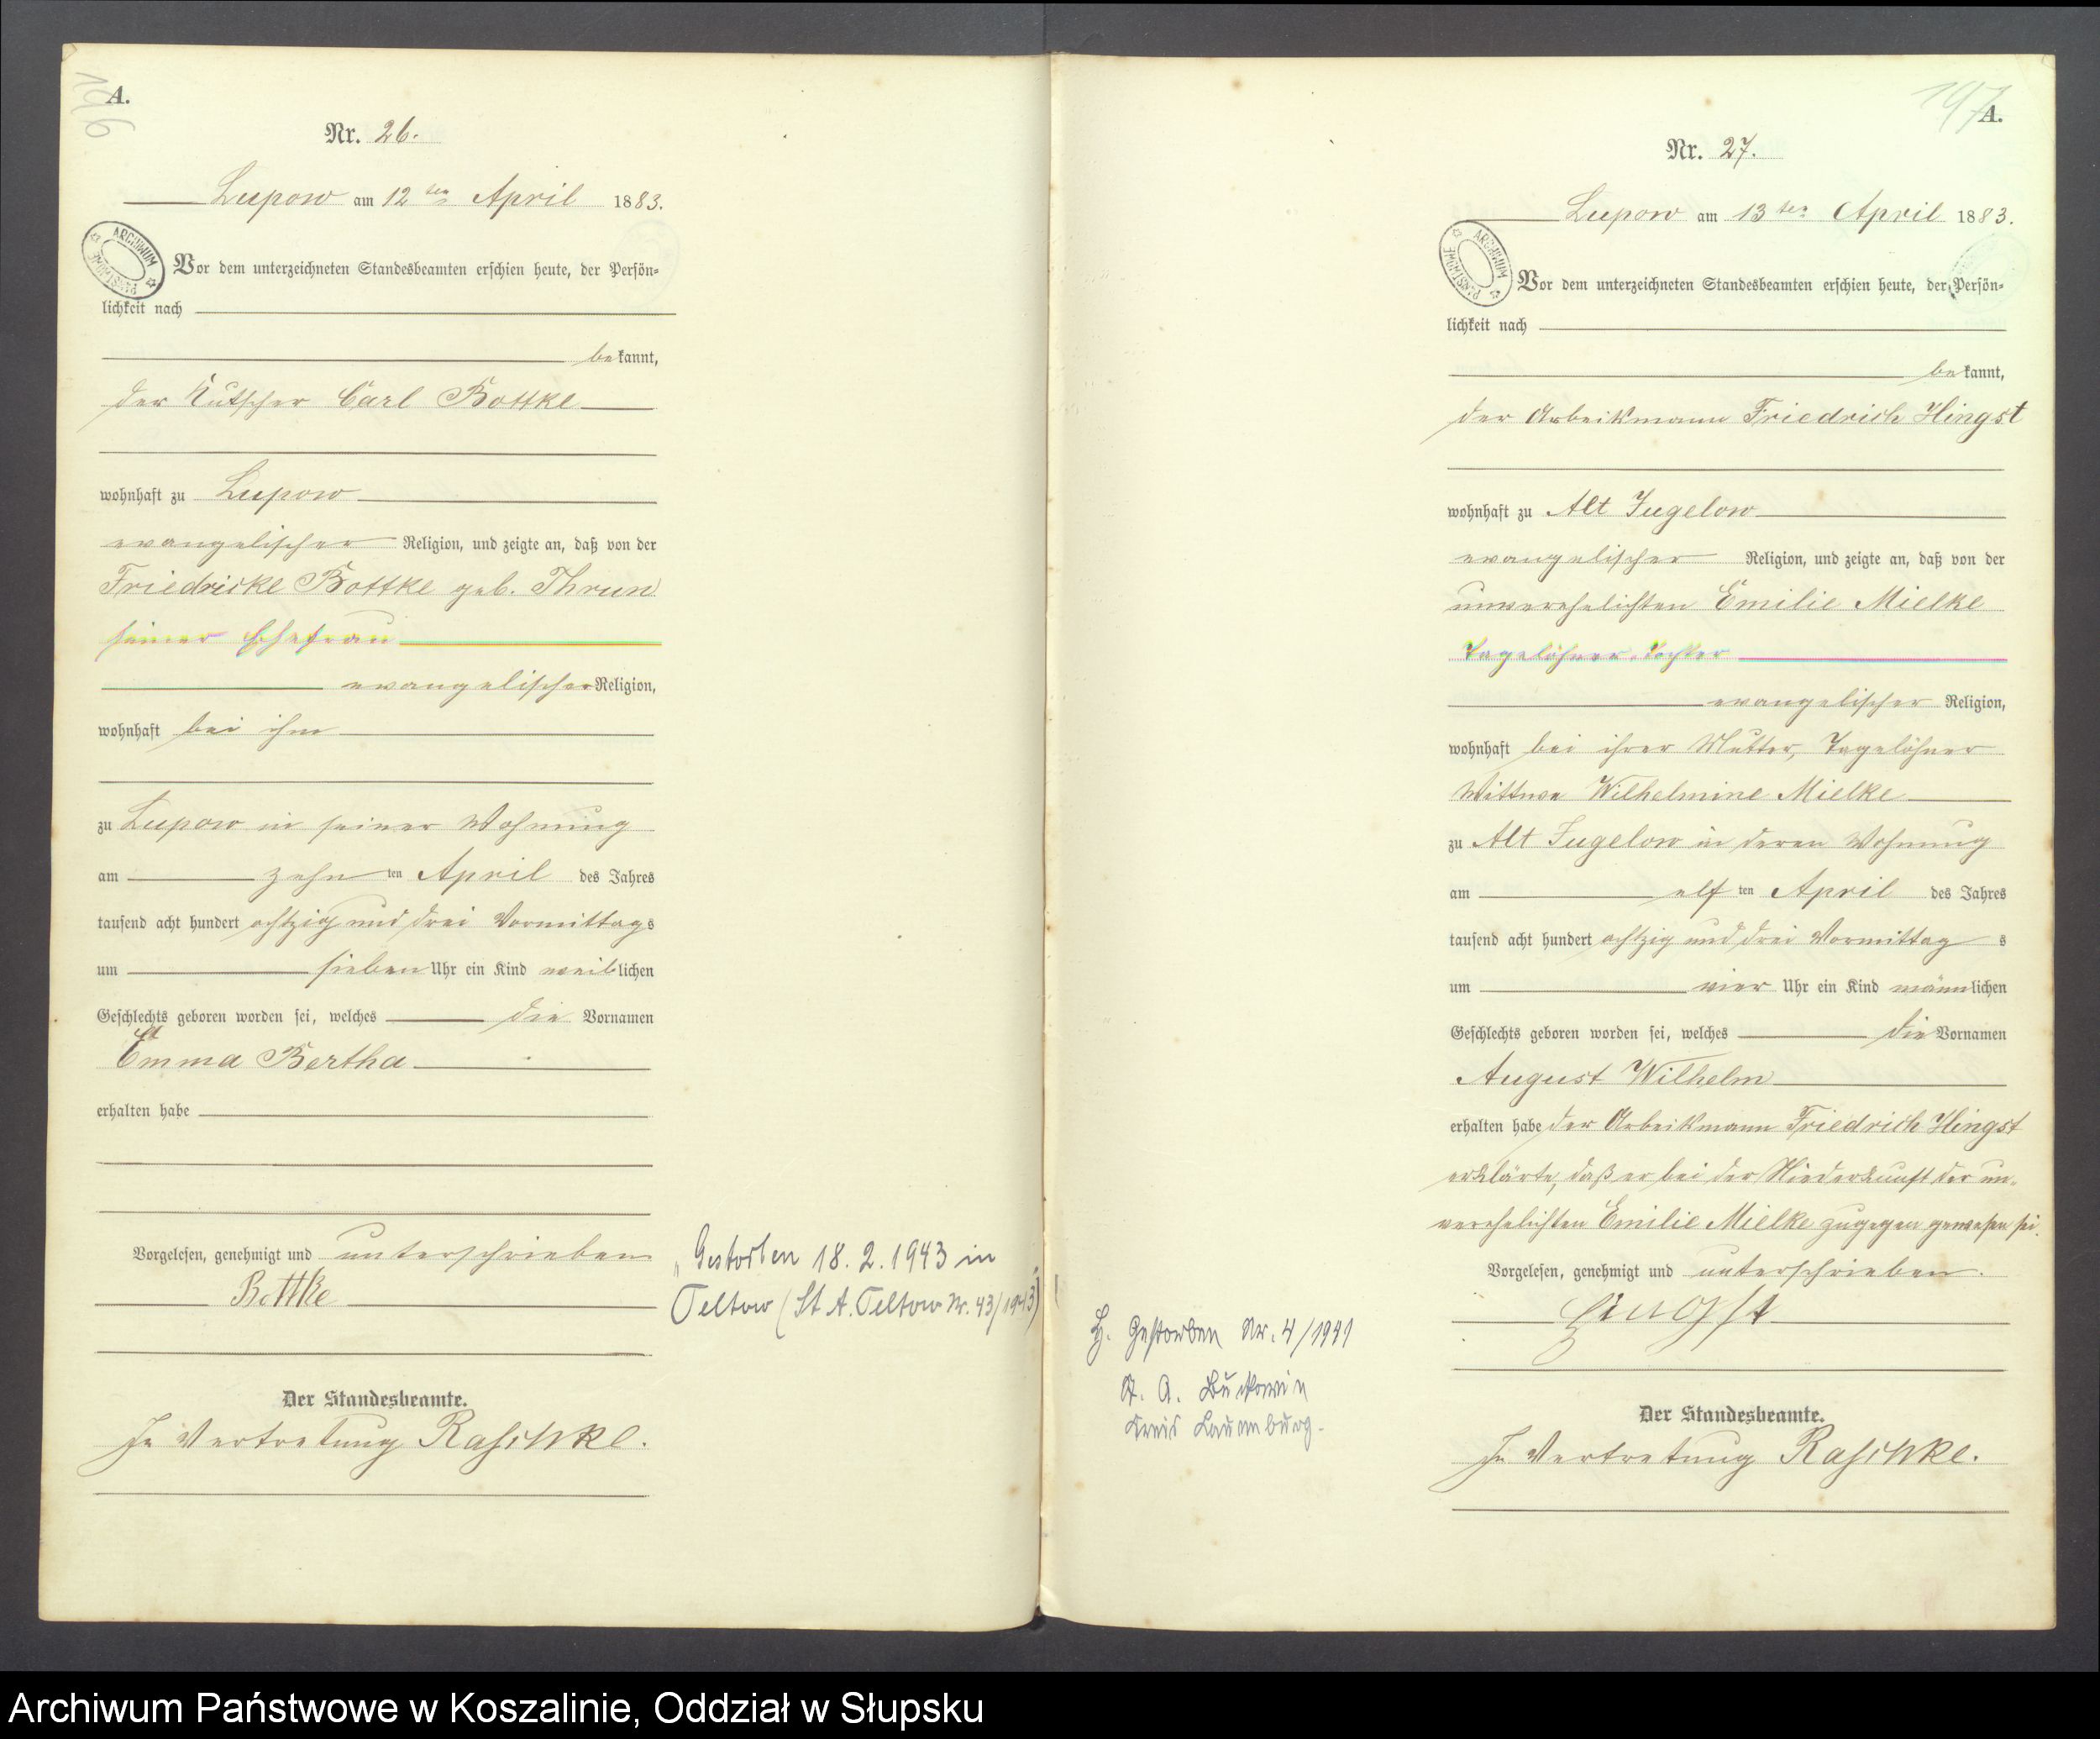 196
A.
Nr. 26.
Lupow am 12ten April 1883.
ARCHIWUM PAŃSTWOWE
Vor dem unterzeichneten Standesbeamten erschien heute, der Persön-
lichkeit nach
bekannt,
der Kutscher Carl Bottke
wohnhaft zu Lupow
evangelischer Religion, und zeigte an, daß von der
Friedricke Bottke geb. Thrun
seiner Ehefrau
evangelischer Religion,
wohnhaft bei ihm
zu Lupow in seiner Wohnung
am zehn ten April des Jahres
tausend acht hundert achtzig und drei Vormittags
um sieben Uhr ein Kind weiblichen
Geschlechts geboren worden sei, welches die Vornamen
Emma Bertha
erhalten habe
Vorgelesen, genehmigt und unterschrieben
Bottke
Der Standesbeamte.
In Vertretung Raschke.
"Gestorben 18.2.1943 in
Teltow (St A. Teltow Nr. 43/1943)"
197
A.
Nr. 27.
Lupow am 13ten April 1883.
ARCHIWUM PAŃSTWOWE
Vor dem unterzeichneten Standesbeamten erschien heute, der Persön-
lichkeit nach
bekannt,
der Arbeitsmann Friedrich Hingst
wohnhaft zu Alt Jugelow
evangelischer Religion, und zeigte an, daß von der
unverehelichten Emilie Mielke
Tagelöhner-Tochter
evangelischer Religion,
wohnhaft bei ihrer Mutter, Tagelöhner
Wittwe Wilhelmine Mielke
zu Alt Jugelow in deren Wohnung
am elf ten April des Jahres
tausend acht hundert achtzig und drei Vormittags
um vier Uhr ein Kind männlichen
Geschlechts geboren worden sei, welches die Vornamen
August Wilhelm
erhalten habe der Arbeitsmann Friedrich Hingst
erklärte, daß er bei der Niederkunft der un-
verehelichten Emilie Mielke zugegen gewesen sei.
Vorgelesen, genehmigt und unterschrieben.
Hingst
Der Standesbeamte.
In Vertretung Raschke.
H. Gestorben Nr. 4/1941
St. A. Buckowin
Kreis Lauenburg.
Archiwum Państwowe w Koszalinie, Oddział w Słupsku